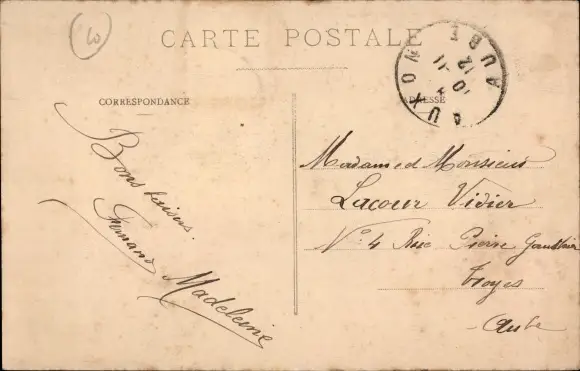 CARTE POSTALE
CORRESPONDANCE
ADRESSE
AUXON
AUBE
10
11
12
Bons baisers
Fernand Madeleine
Madame et Monsieur
Lacour Vidier
N° 4 Rue Pierre Gauthier
Troyes
Aube